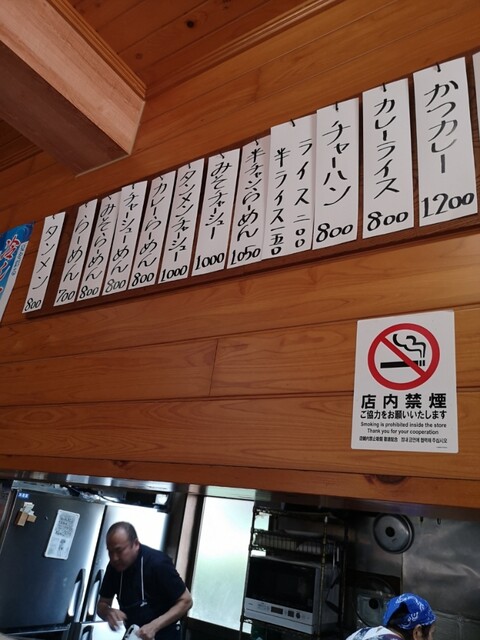 かつカレー
1200
カレーライス
800
チャーハン
800
ライス 二〇〇
半ライス 一五〇
半チャンらーめん
1050
みそチャーシュー
1000
タンメンチャーシュー
1000
カレーらーめん
800
チャーシューめん
800
みそらーめん
800
らーめん
700
タンメン
800
店内禁煙
ご協力をお願いいたします
Smoking is prohibited inside the store
Thank you for your cooperation